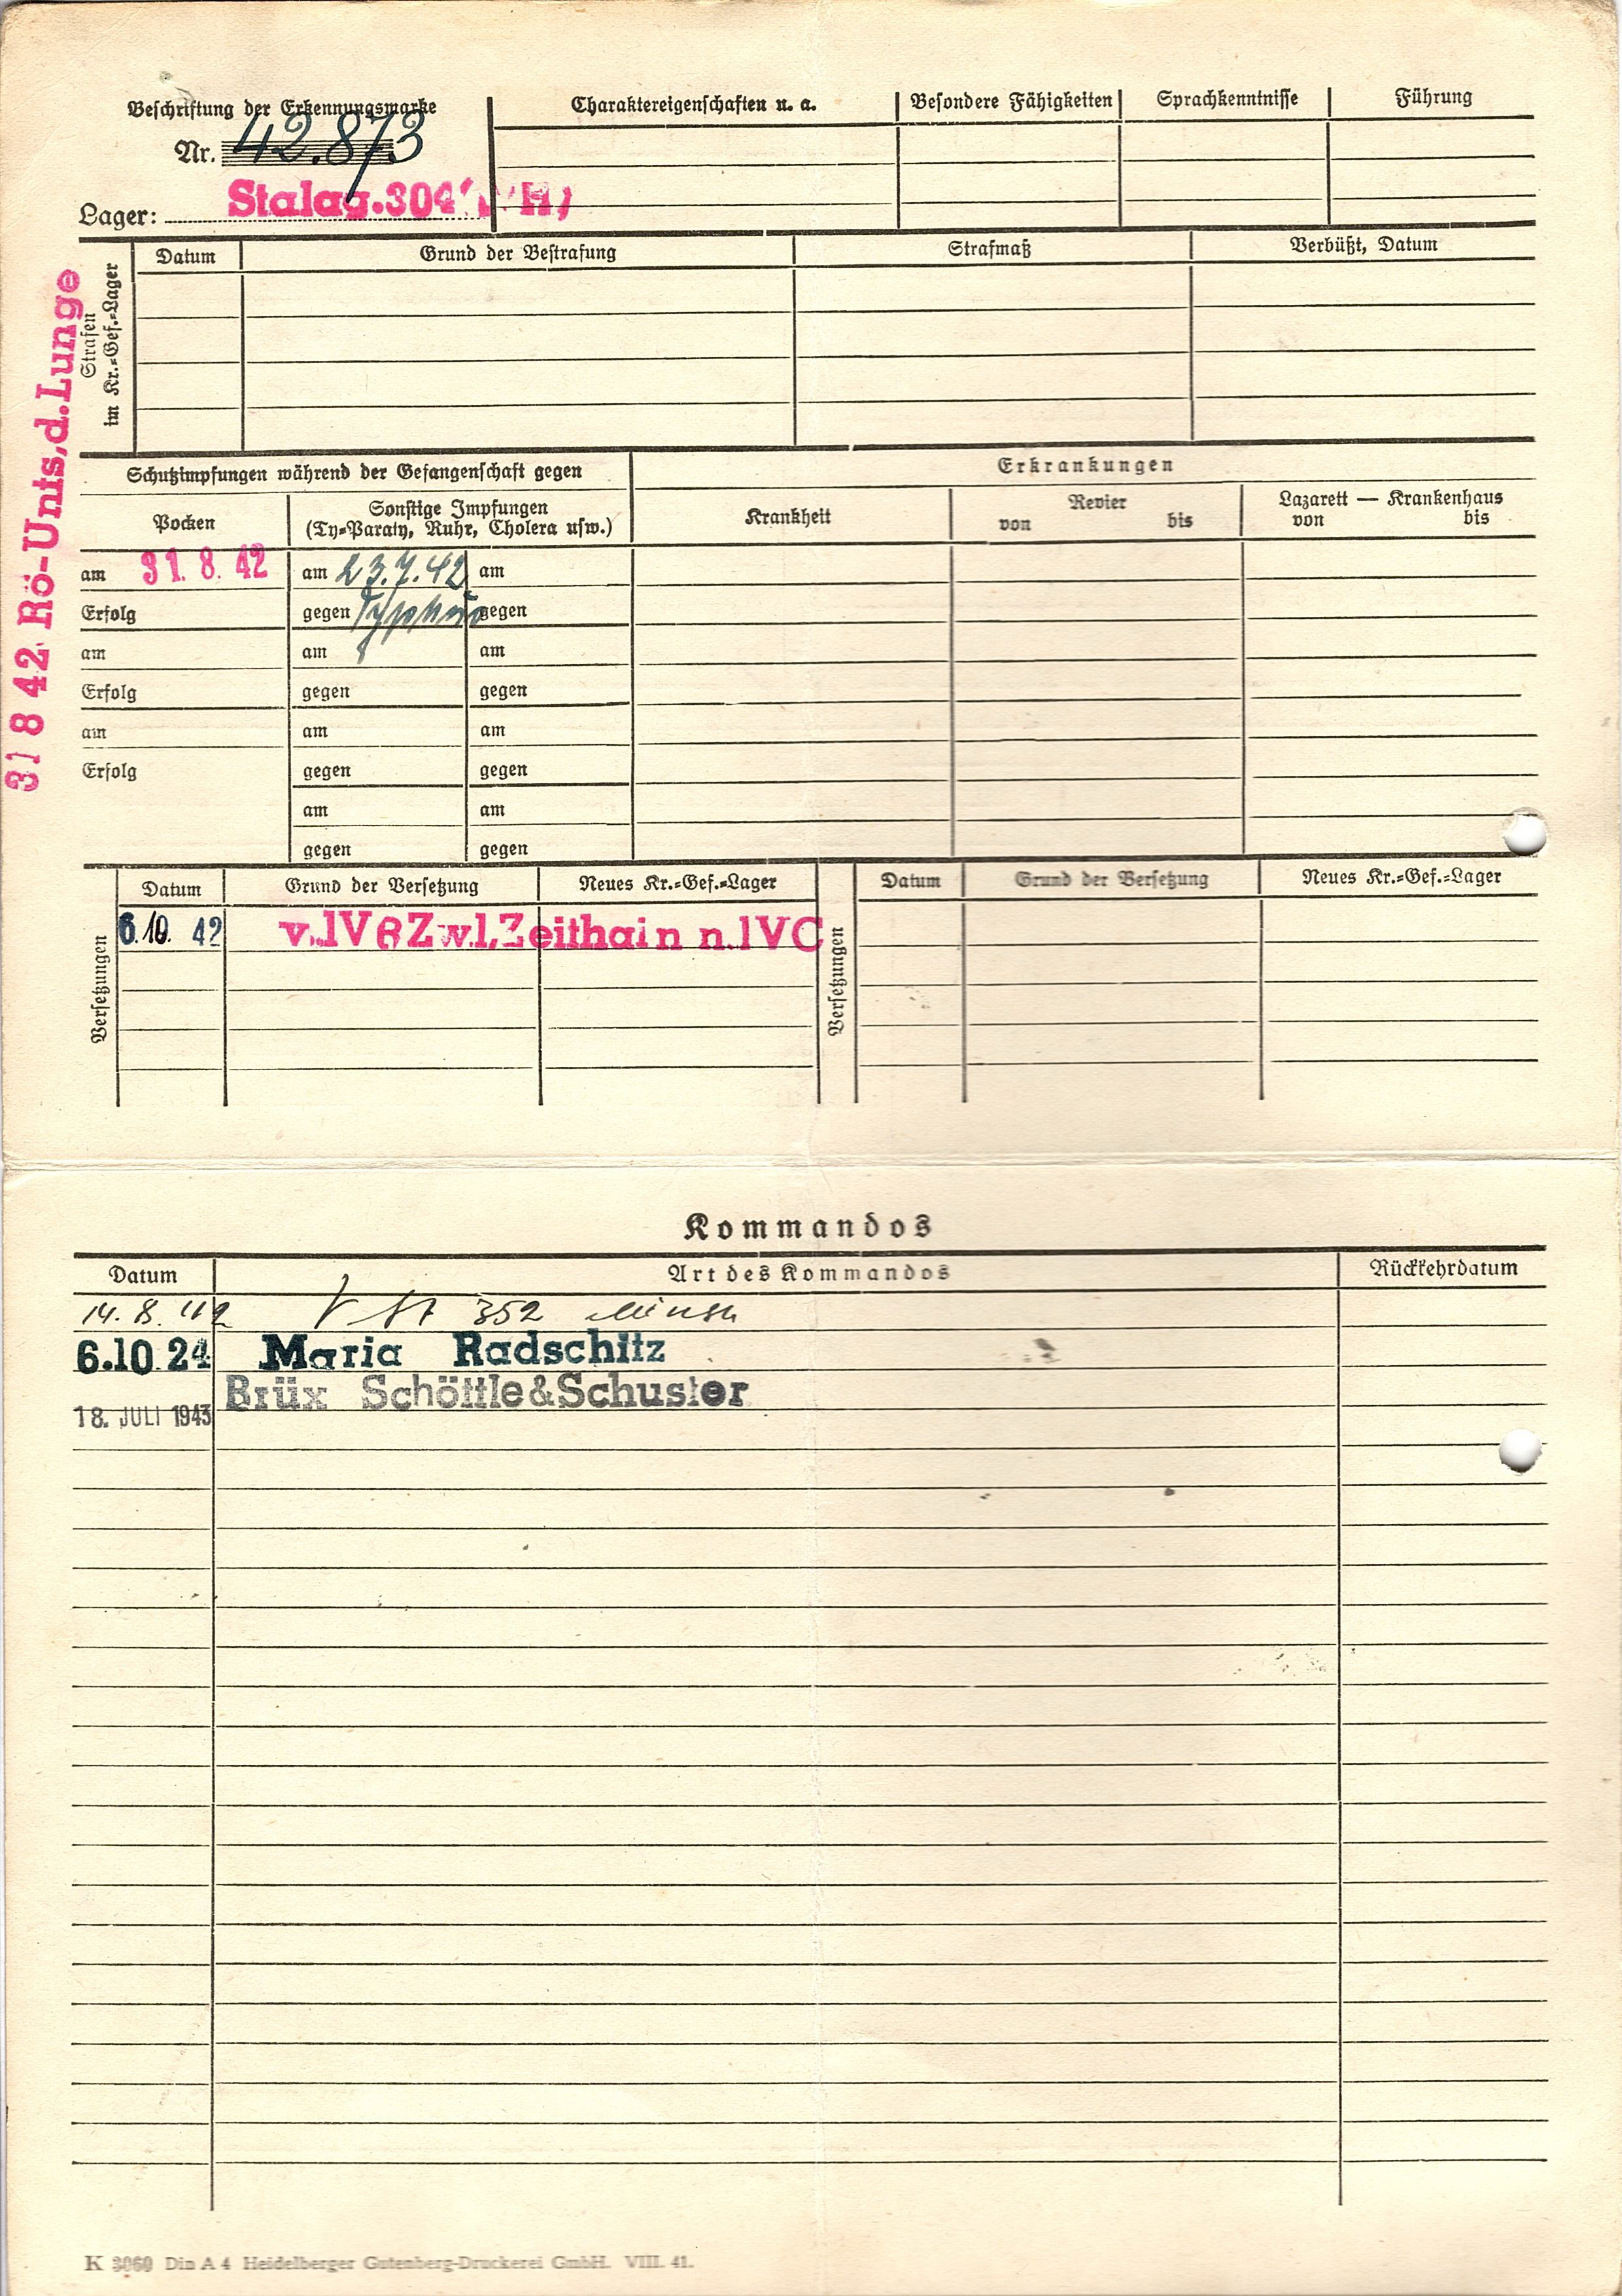 Beschriftung der Erkennungsmarke
Nr. 42.873
Lager: Stalag.304 H)
Charaktereigenschaften u. a.
Besondere Fähigkeiten
Sprachkenntnisse
Führung
Strafen
im Kr.=Gef.=Lager
Datum
Grund der Bestrafung
Strafmaß
Verbüßt, Datum
31 8 42 Rö-Unts,d.Lunge
Schutzimpfungen während der Gefangenschaft gegen
Erkrankungen
Pocken
Sonstige Impfungen
(Ty=Paraty, Ruhr, Cholera usw.)
Krankheit
Revier
von bis
Lazarett — Krankenhaus
von bis
am 31. 8. 42 am 23.7.42 am
Erfolg gegen Typhus gegen
am am am
Erfolg gegen gegen
am am am
Erfolg gegen gegen
am am
gegen gegen
Versetzungen
Datum
Grund der Versetzung
Neues Kr.=Gef.=Lager
6.10. 42 v.IVBZw.l,Zeithain n.IVC
Versetzungen
Datum
Grund der Versetzung
Neues Kr.=Gef.=Lager
Kommandos
Datum
Art des Kommandos
Rückkehrdatum
14.8.42 352
6.10.24 Maria Radschitz
18. JULI 1943 Brüx Schöttle&Schuster
K 3060 Din A 4 Heidelberger Gutenberg-Druckerei GmbH. VIII. 41.